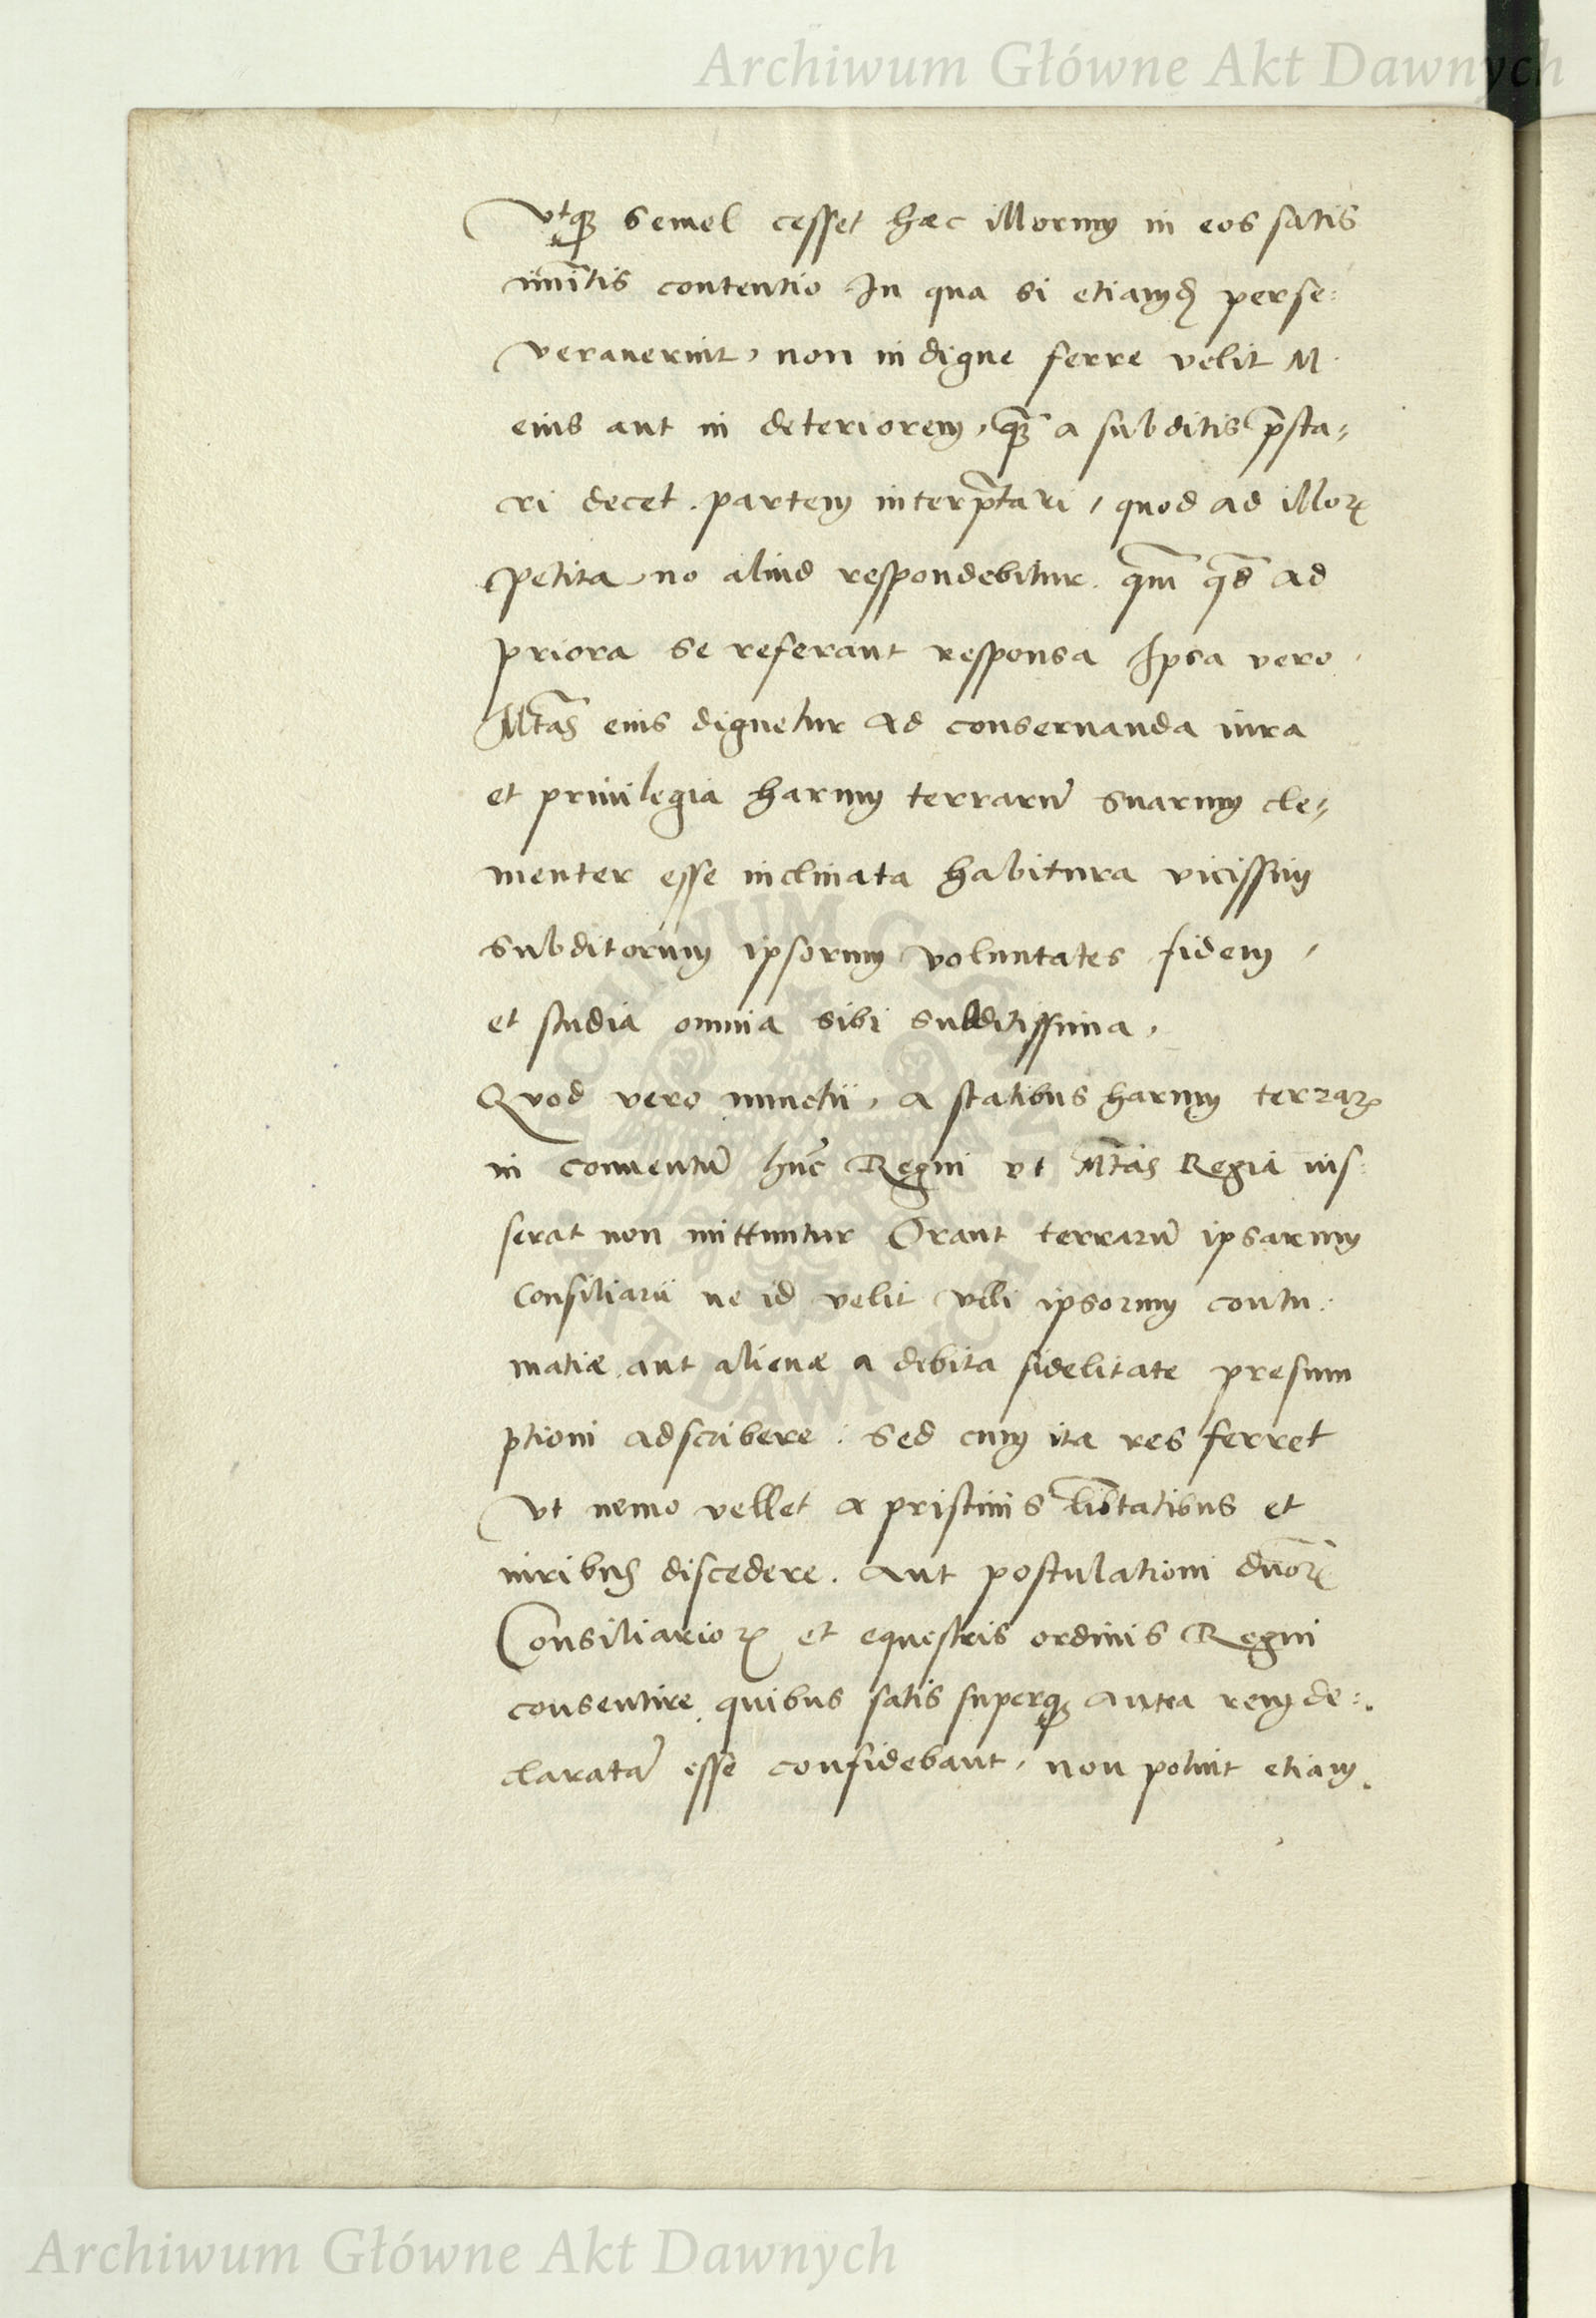 Archiwum Główne Akt Dawnych
Vtqꝫ semel cesset hæc illorum in eos satis
contentio In qua si etiam perse:
verauerint, non indigne ferre velit M.
eius aut in deteriorem, qꝫ̃ a subditis p̃sta-
ri decet. partem interp̃tari, quod ad illoꝝ
petita no aliud respondebitur. qm̃ qd̃ ad
priora se referant responsa Ipsa vero
Mtãs eius dignetur ad conseruanda iura
et priuilegia harum terrarũ suarum cle-
menter esse inclinata habitura vicissim
subditorum ipsorum voluntates fidem,
et studia omnia sibi subditissima.
Quod vero nunctii, a statibus harum terraꝝ
in conuentũ hũc Regni vt Mtãs Regia ius:
serat non mittuntur Orant terrarũ ipsarum
Consiliarii ne id velit vlli ipsorum contu:
matiæ aut alienæ a debita fidelitate presum
ptioni adscribere: sed cum ita res ferret
Vt nemo vellet a pristinis lib̃tatibus et
iuribus discedere. aut postulationi dñoꝝ
Consiliarioꝝ et equestris ordinis Regni
consentire quibus satis superqꝫ antea rem de:
claratã esse confidebant, non potuit etiam.
ARCHIWUM GŁÓWNE
AKT DAWNYCH
Archiwum Główne Akt Dawnych